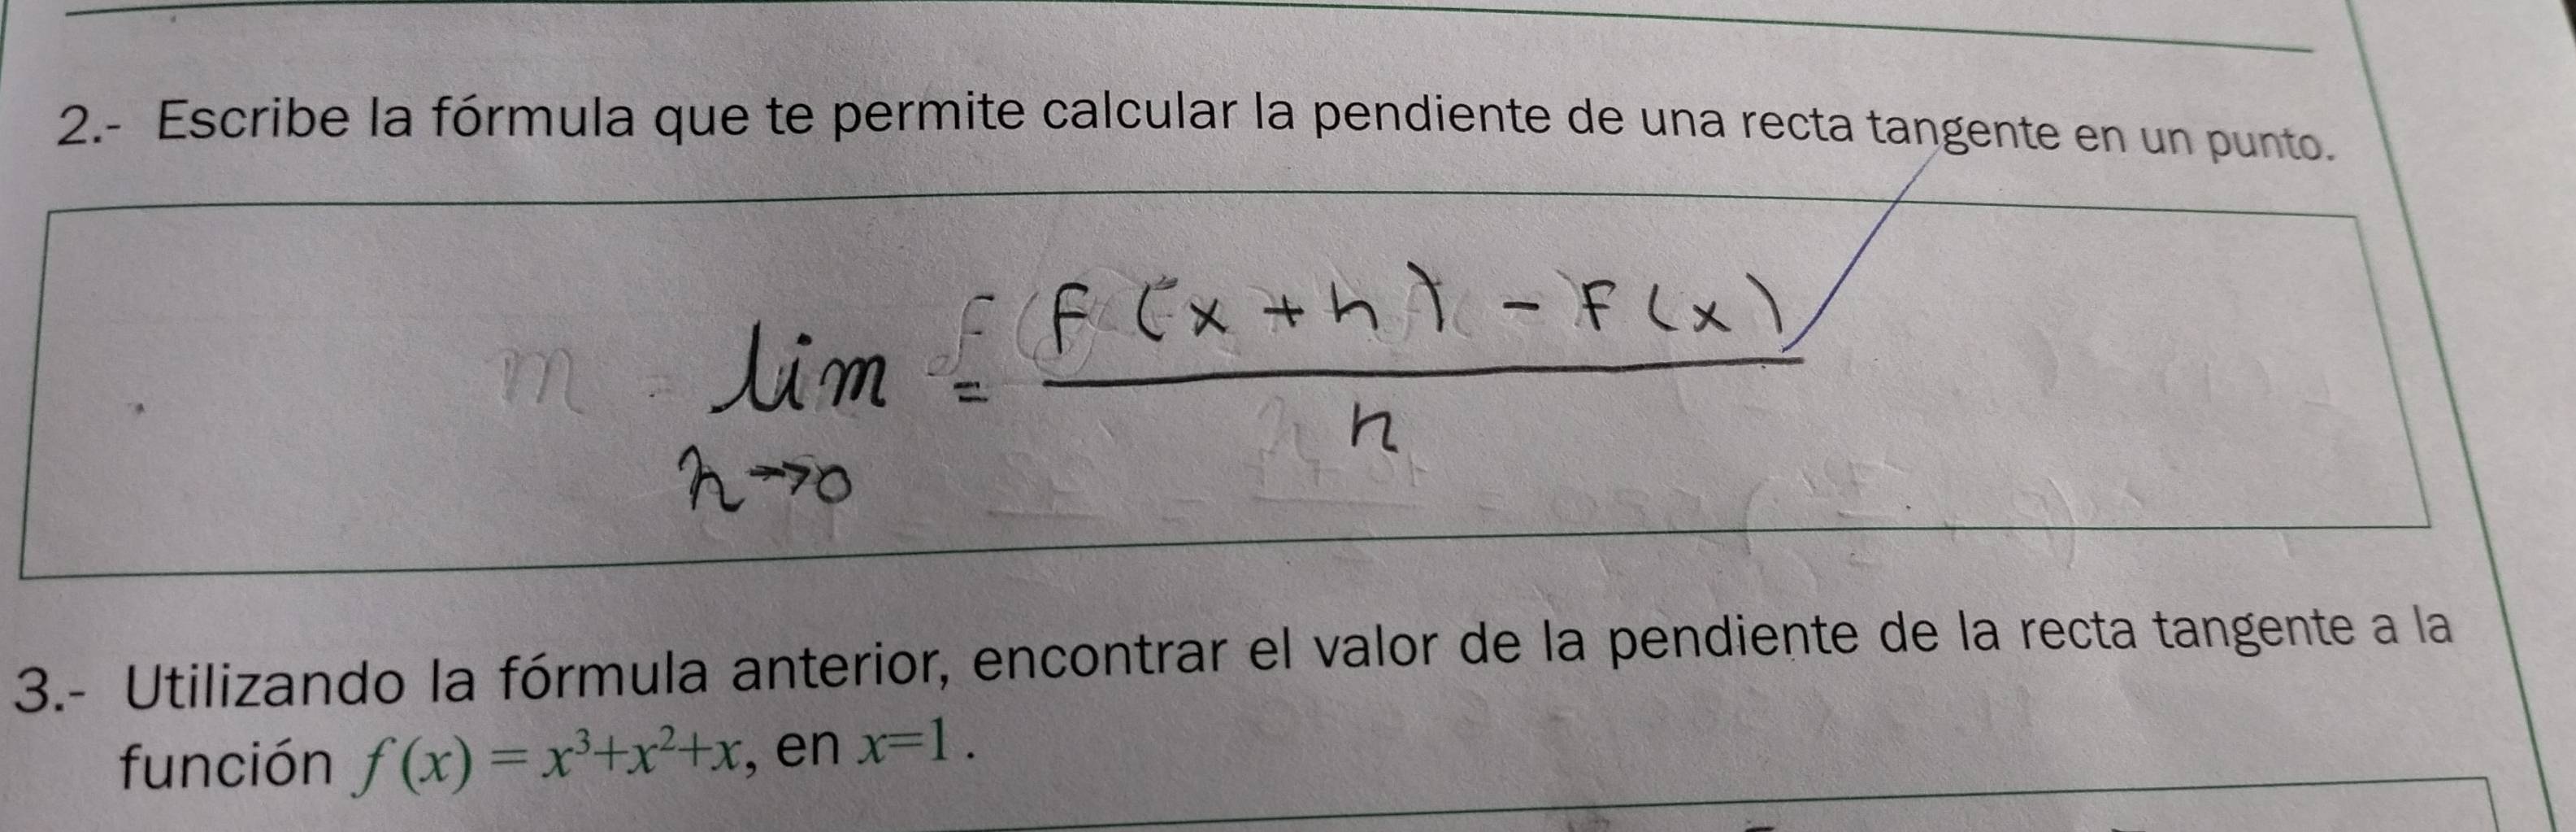 2.- Escribe la fórmula que te permite calcular la pendiente de una recta tangente en un punto.
F(x+h) - F(x)
m lim =
h
h→0
3.- Utilizando la fórmula anterior, encontrar el valor de la pendiente de la recta tangente a la
función f(x) = x³+x²+x, en x=1.